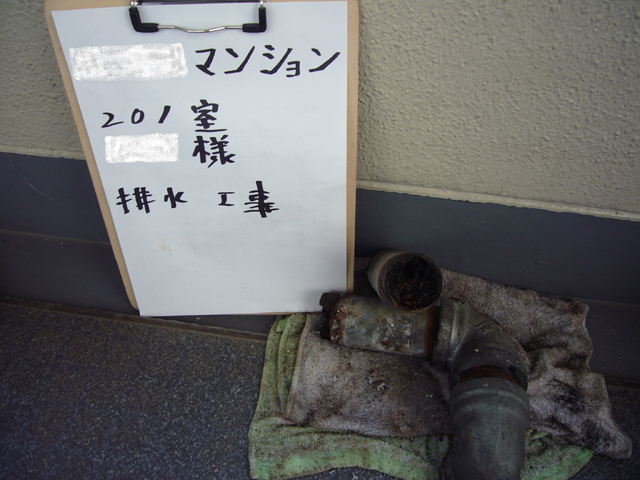 マンション
201 室
様
排水 工事